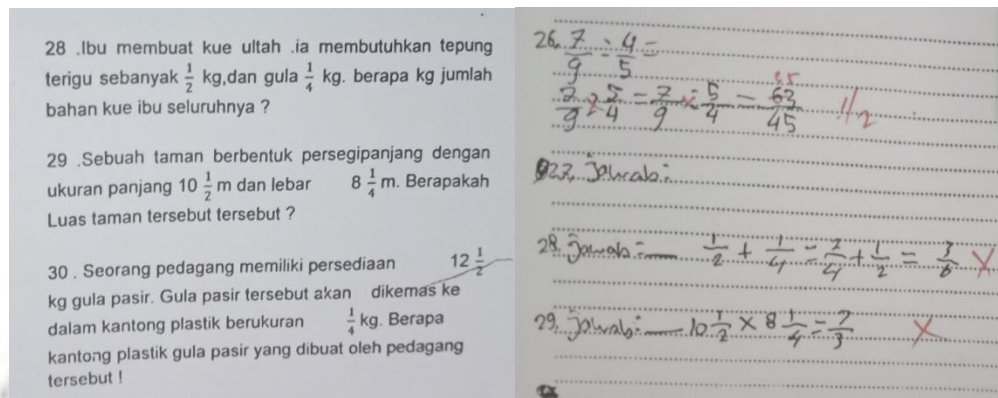 28 .Ibu membuat kue ultah .ia membutuhkan tepung
terigu sebanyak 1/2 kg,dan gula 1/4 kg. berapa kg jumlah
bahan kue ibu seluruhnya ?
29 .Sebuah taman berbentuk persegipanjang dengan
ukuran panjang 10 1/2 m dan lebar 8 1/4 m. Berapakah
Luas taman tersebut tersebut ?
30 . Seorang pedagang memiliki persediaan 12 1/2
kg gula pasir. Gula pasir tersebut akan dikemas ke
dalam kantong plastik berukuran 1/4 kg. Berapa
kantong plastik gula pasir yang dibuat oleh pedagang
tersebut !
26. 7/9 : 4/5 =
7/9 5/4 = 7/9 × 5/4 = 63/45 1/2
27. Jawab :
28. Jawab : 1/2 + 1/4 = 2/4 + 1/2 = 3/6 X
29. Jawab : 10 1/2 × 8 1/4 = 7/3 X